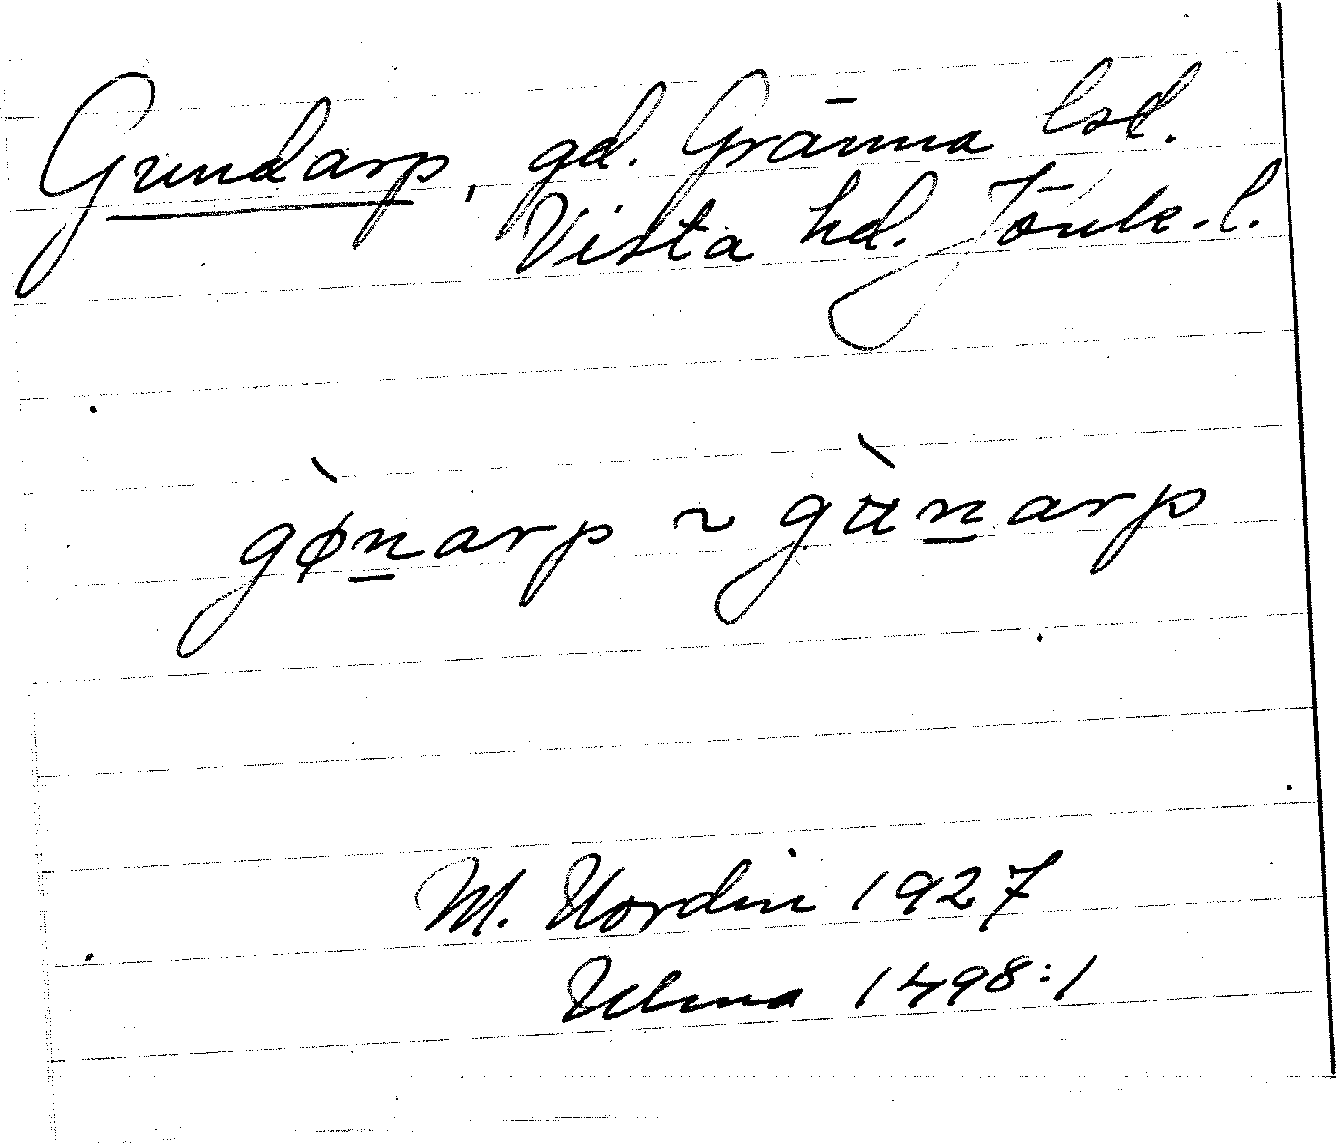 Gundarp, gd. Gränna lsd.
Vista hd. Jönk. l.
gø̀n̲arp ~ gùn̲arp
M. Nordin 1927
Ulma 1498:1